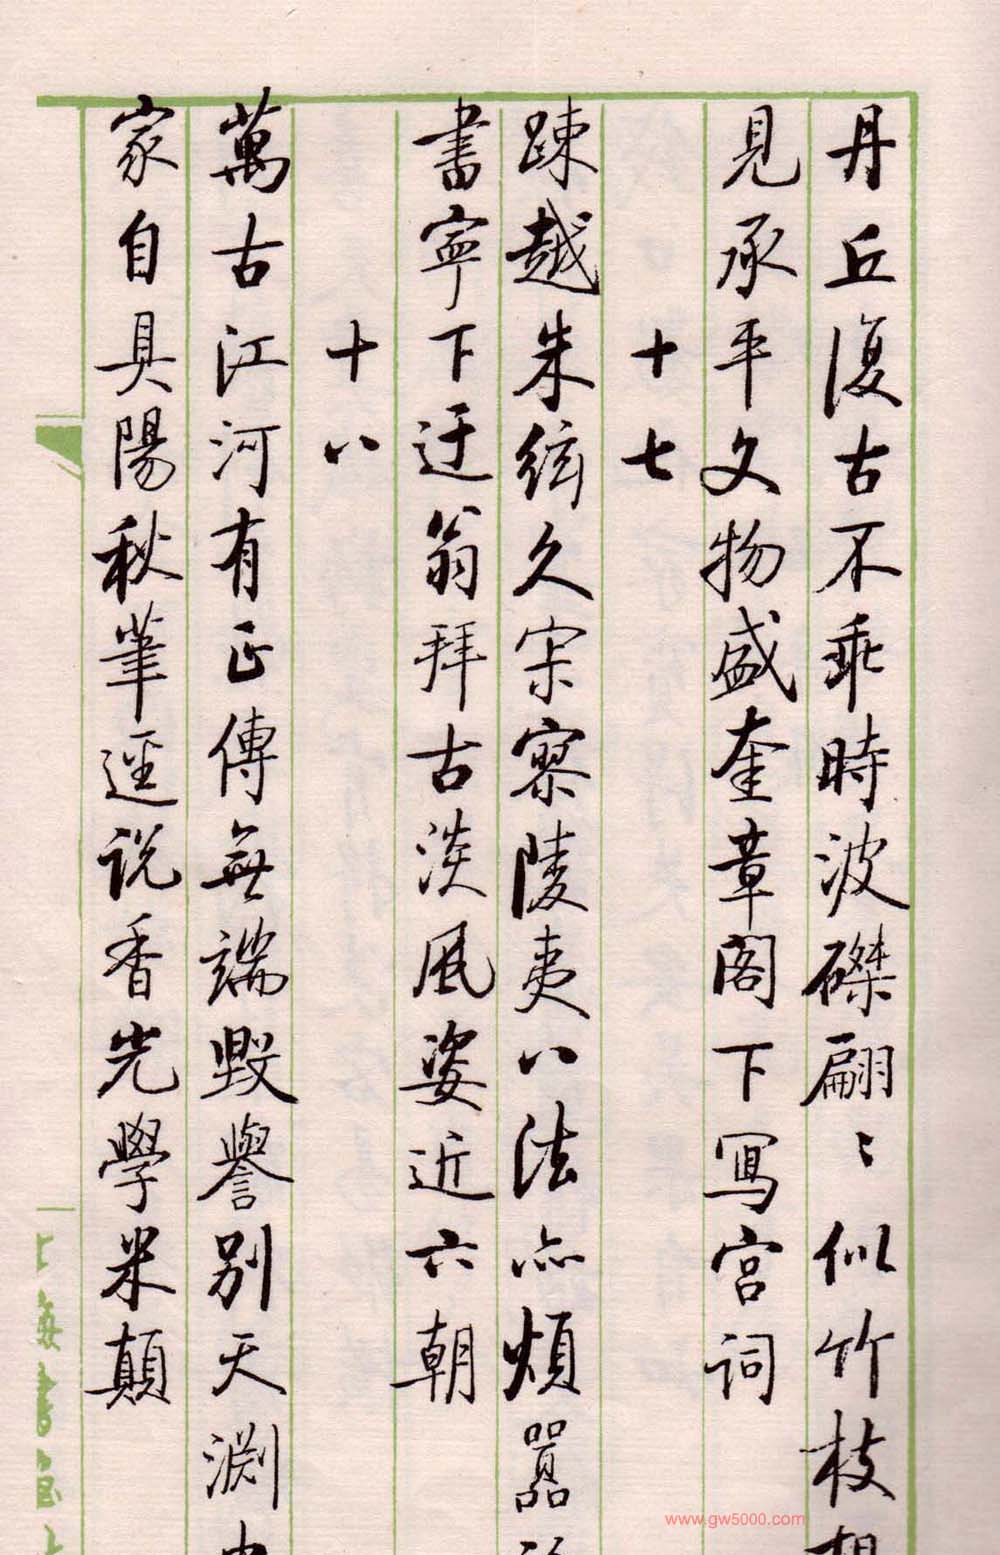 丹丘復古不乖時波磔翩〻似竹枝想
見承平文物盛奎章閣下寫宮詞
十七
疎越朱絃久寂寥陵夷八法亦煩囂
書寧下迂翁拜古淡風姿近六朝
十八
萬古江河有正傳無端毀譽別天淵
家自具陽秋筆逕說香光學米顛
上海書畫
www.gw5000.com